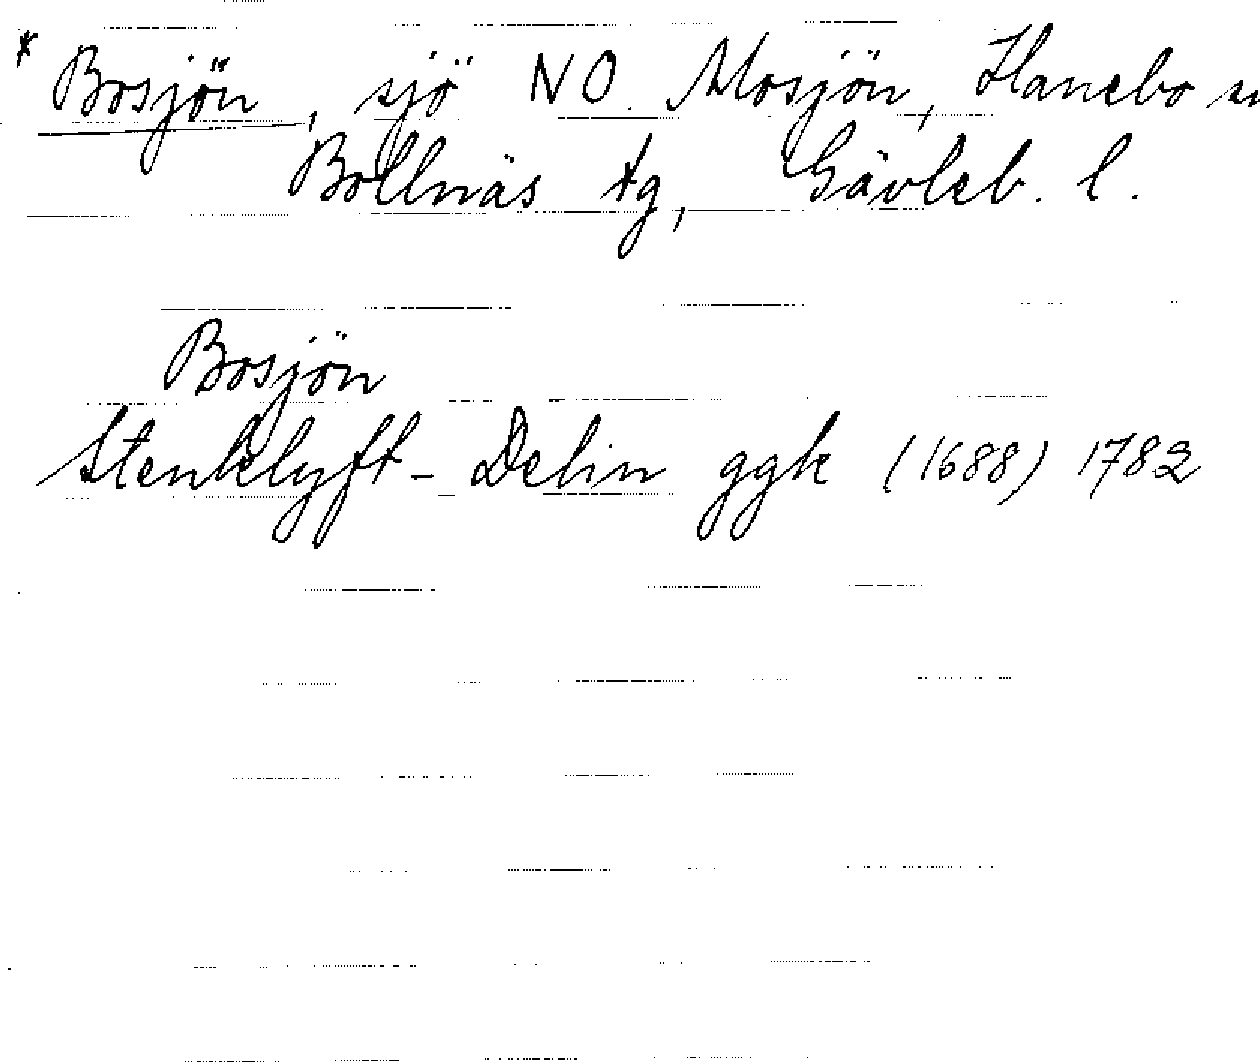 * Bosjön, sjö NO. Mosjön, Hanebo sn
Bollnäs tg, Gävleb. l.
Bosjön
Stenklyft-Delin ggk (1688) 1782